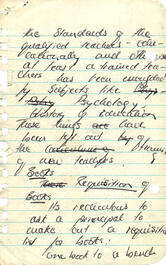 the Standards of the
qualified teachers - edu-
cationally and otherwise
at least a trained tea-
chers has been
by subjects like
Psychology,
History of Education
these things are have
been left out by
of new teachers.
Books
Requisition of
Books
Its ridiculous to
ask a principal to
make out a requisition
list for books.
Come back to a bench